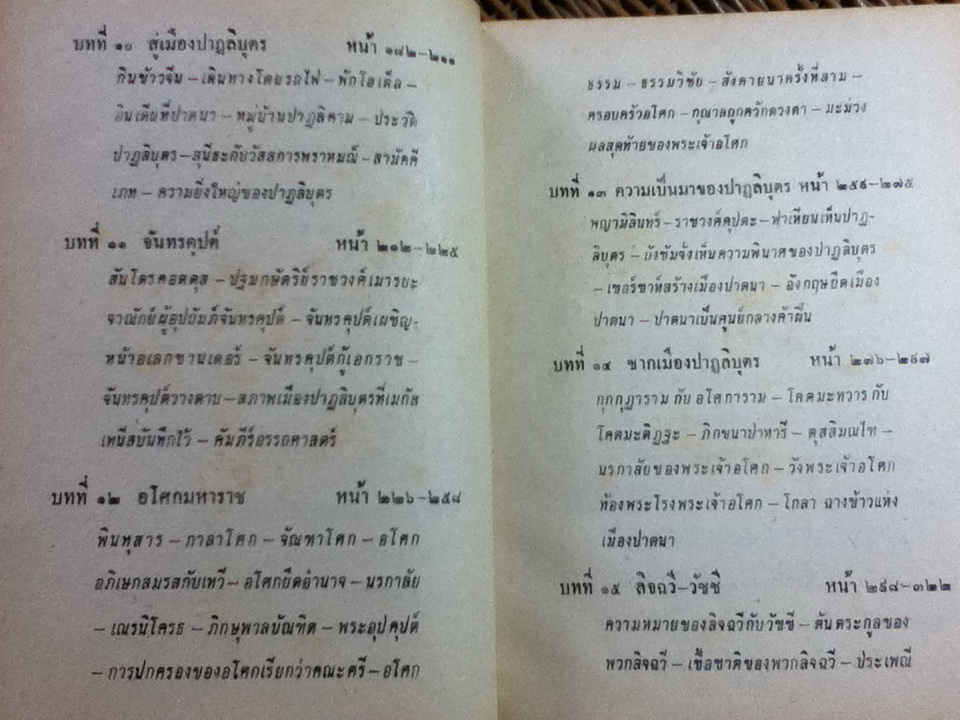 บทที่ ๑๐ สู่เมืองปาฏลิบุตร หน้า ๑๘๒-๒๑๑
กินข้าวจีน – เดินทางโดยรถไฟ – พักโฮเต็ล –
อินเดียที่ปาตนา – หมู่บ้านปาฏลิคาม – ประวัติ
ปาฏลิบุตร – สุนีธะกับวัสสการพราหมณ์ – สามัคคี
เภท – ความยิ่งใหญ่ของปาฏลิบุตร
บทที่ ๑๑ จันทรคุปต์ หน้า ๒๑๒-๒๒๕
สันโดรคอตตุส – ปฐมกษัตริย์ราชวงค์เมารยะ
จาณักย์ผู้อุปถัมภ์จันทรคุปต์ – จันทรคุปต์เผชิญ-
หน้าอเลกซานเดอร์ – จันทรคุปต์กู้เอกราช –
จันทรคุปต์วางดาบ – สภาพเมืองปาฏลิบุตรที่เมกัส
เทนีสบันทึกไว้ – คัมภีร์อรรถศาสตร์
บทที่ ๑๒ อโศกมหาราช หน้า ๒๒๖-๒๕๘
พินทุสาร – กาลาโศก – จัณฑาโศก – อโศก
อภิเษกสมรสกับเทวี – อโศกยึดอำนาจ – นรกาลัย
– เณรนิโครธ – ภิกษุพาลบัณฑิต – พระอุปคุปต์
– การปกครองของอโศกเรียกว่าคณะตรี – อโศก
ธรรม – ธรรมวิชัย – สังคายนาครั้งที่สาม –
ครอบครัวอโศก – กุณาลถูกควักดวงตา – มะม่วง
ผลสุดท้ายของพระเจ้าอโศก
บทที่ ๑๓ ความเป็นมาของปาฏลิบุตร หน้า ๒๕๙-๒๗๕
พญามิลินทร์ – ราชวงศ์คุปตะ – ฟาเหียนเห็นปาฏ-
ลิบุตร – ยังซัมจังเห็นความพินาศของปาฏลิบุตร
– เชอร์ชาห์สร้างเมืองปาตนา – อังกฤษยึดเมือง
ปาตนา – ปาตนาเป็นศูนย์กลางค้าฝิ่น
บทที่ ๑๔ ซากเมืองปาฏลิบุตร หน้า ๒๗๖-๒๙๗
กุกกุฏาราม กับ อโศการาม – โคตมะทวาร กับ
โคตมะติฏฐะ – ภิกขนาปาหารี – ตุสสิมณไท –
นรกาลัยของพระเจ้าอโศก – วังพระเจ้าอโศก
ท้องพระโรงพระเจ้าอโศก – โกลา ฉางข้าวแห่ง
เมืองปาตนา
บทที่ ๑๕ ลิจฉวี–วัชชี หน้า ๒๙๘-๓๒๒
ความหมายของลิจฉวีกับวัชชี – ต้นตระกูลของ
พวกลิจฉวี – เชื้อชาติของพวกลิจฉวี – ประเพณี